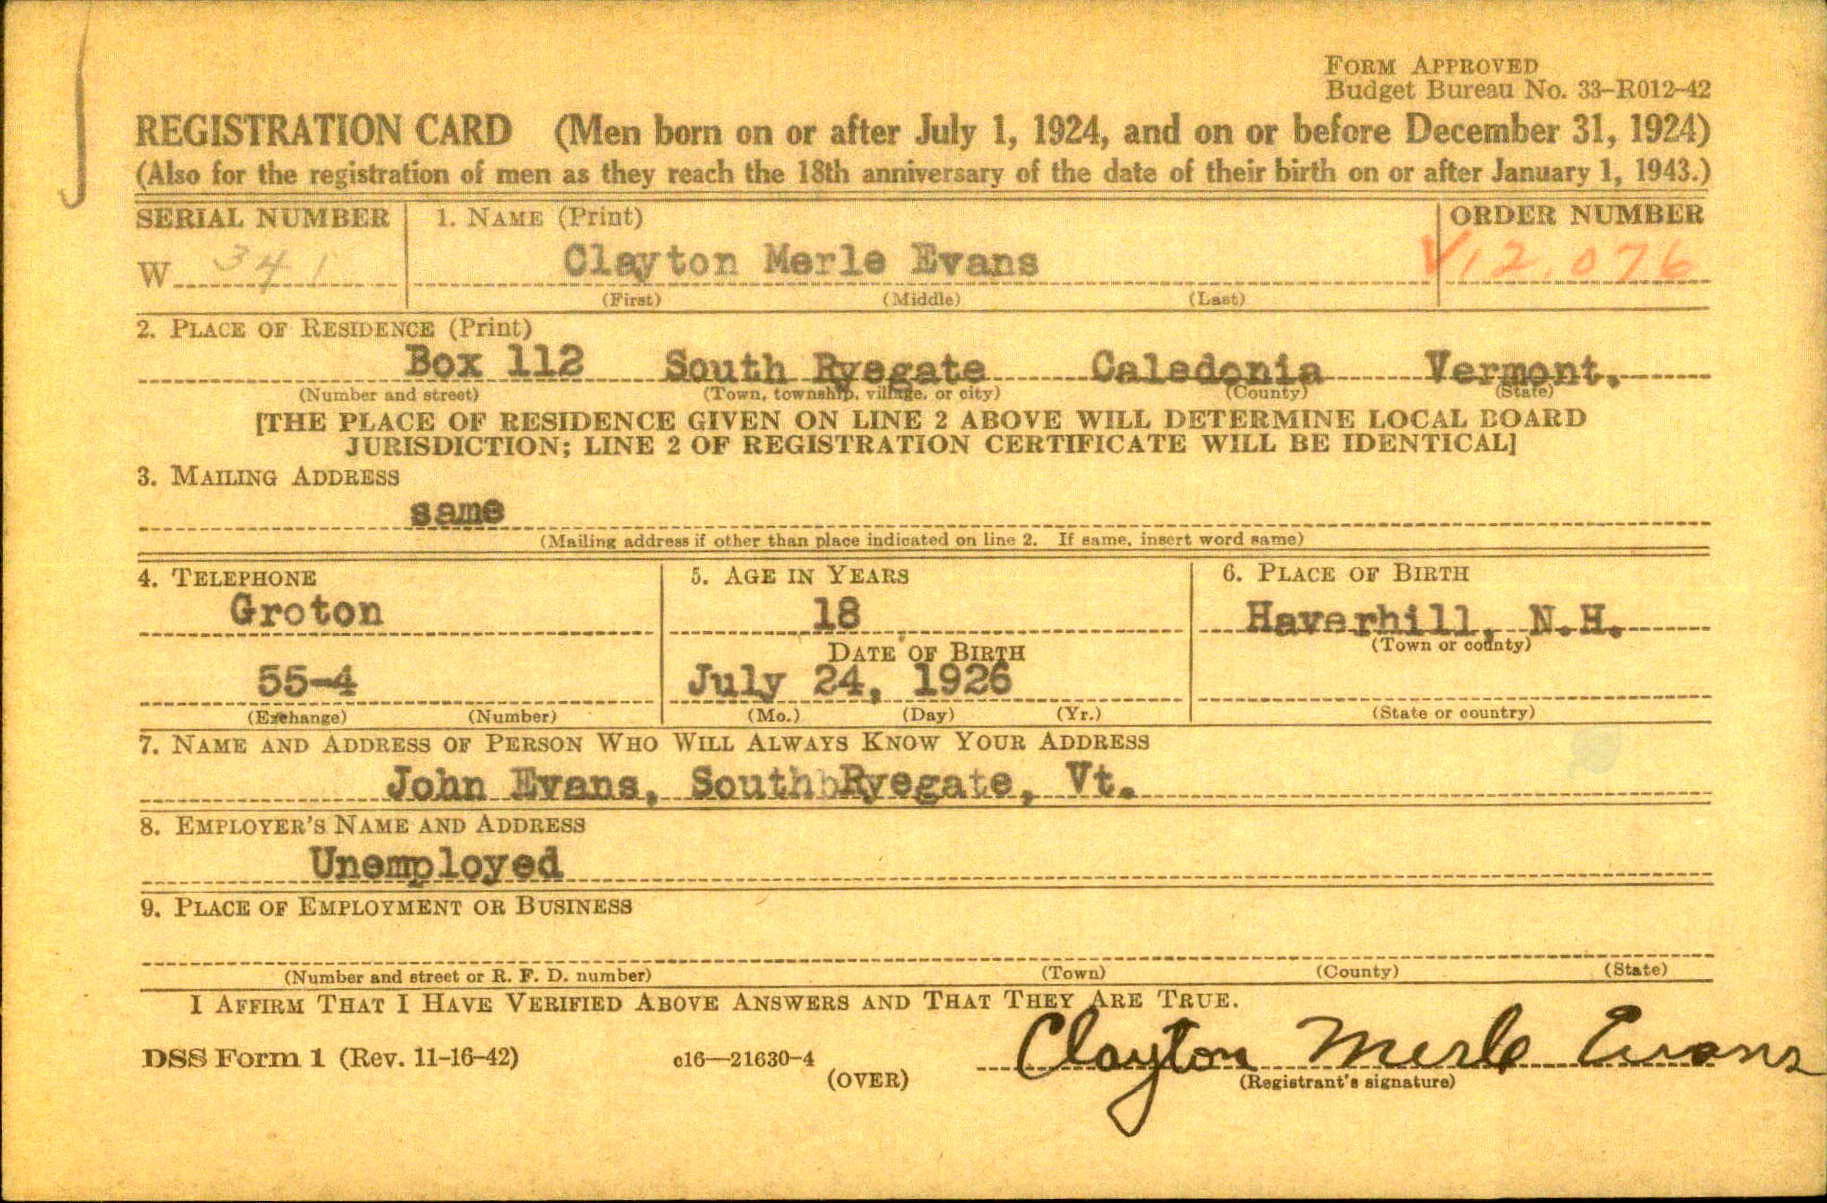 FORM APPROVED
Budget Bureau No. 33-R012-42
REGISTRATION CARD (Men born on or after July 1, 1924, and on or before December 31, 1924)
(Also for the registration of men as they reach the 18th anniversary of the date of their birth on or after January 1, 1943.)
SERIAL NUMBER 1. NAME (Print) ORDER NUMBER
W 341 Clayton Merle Evans 12,076
(First) (Middle) (Last)
2. PLACE OF RESIDENCE (Print)
Box 112 South Ryegate Caledonia Vermont.
(Number and street) (Town, township, village, or city) (County) (State)
[THE PLACE OF RESIDENCE GIVEN ON LINE 2 ABOVE WILL DETERMINE LOCAL BOARD
JURISDICTION; LINE 2 OF REGISTRATION CERTIFICATE WILL BE IDENTICAL]
3. MAILING ADDRESS
same
(Mailing address if other than place indicated on line 2. If same, insert word same)
4. TELEPHONE 5. AGE IN YEARS 6. PLACE OF BIRTH
Groton 18 Haverhill, N.H.
DATE OF BIRTH (Town or county)
55-4 July 24, 1926
(Exchange) (Number) (Mo.) (Day) (Yr.) (State or country)
7. NAME AND ADDRESS OF PERSON WHO WILL ALWAYS KNOW YOUR ADDRESS
John Evans, South Ryegate, Vt.
8. EMPLOYER'S NAME AND ADDRESS
Unemployed
9. PLACE OF EMPLOYMENT OR BUSINESS
(Number and street or R. F. D. number) (Town) (County) (State)
I AFFIRM THAT I HAVE VERIFIED ABOVE ANSWERS AND THAT THEY ARE TRUE.
DSS Form 1 (Rev. 11-16-42) c16—21630-4 Clayton Merle Evans
(OVER) (Registrant's signature)